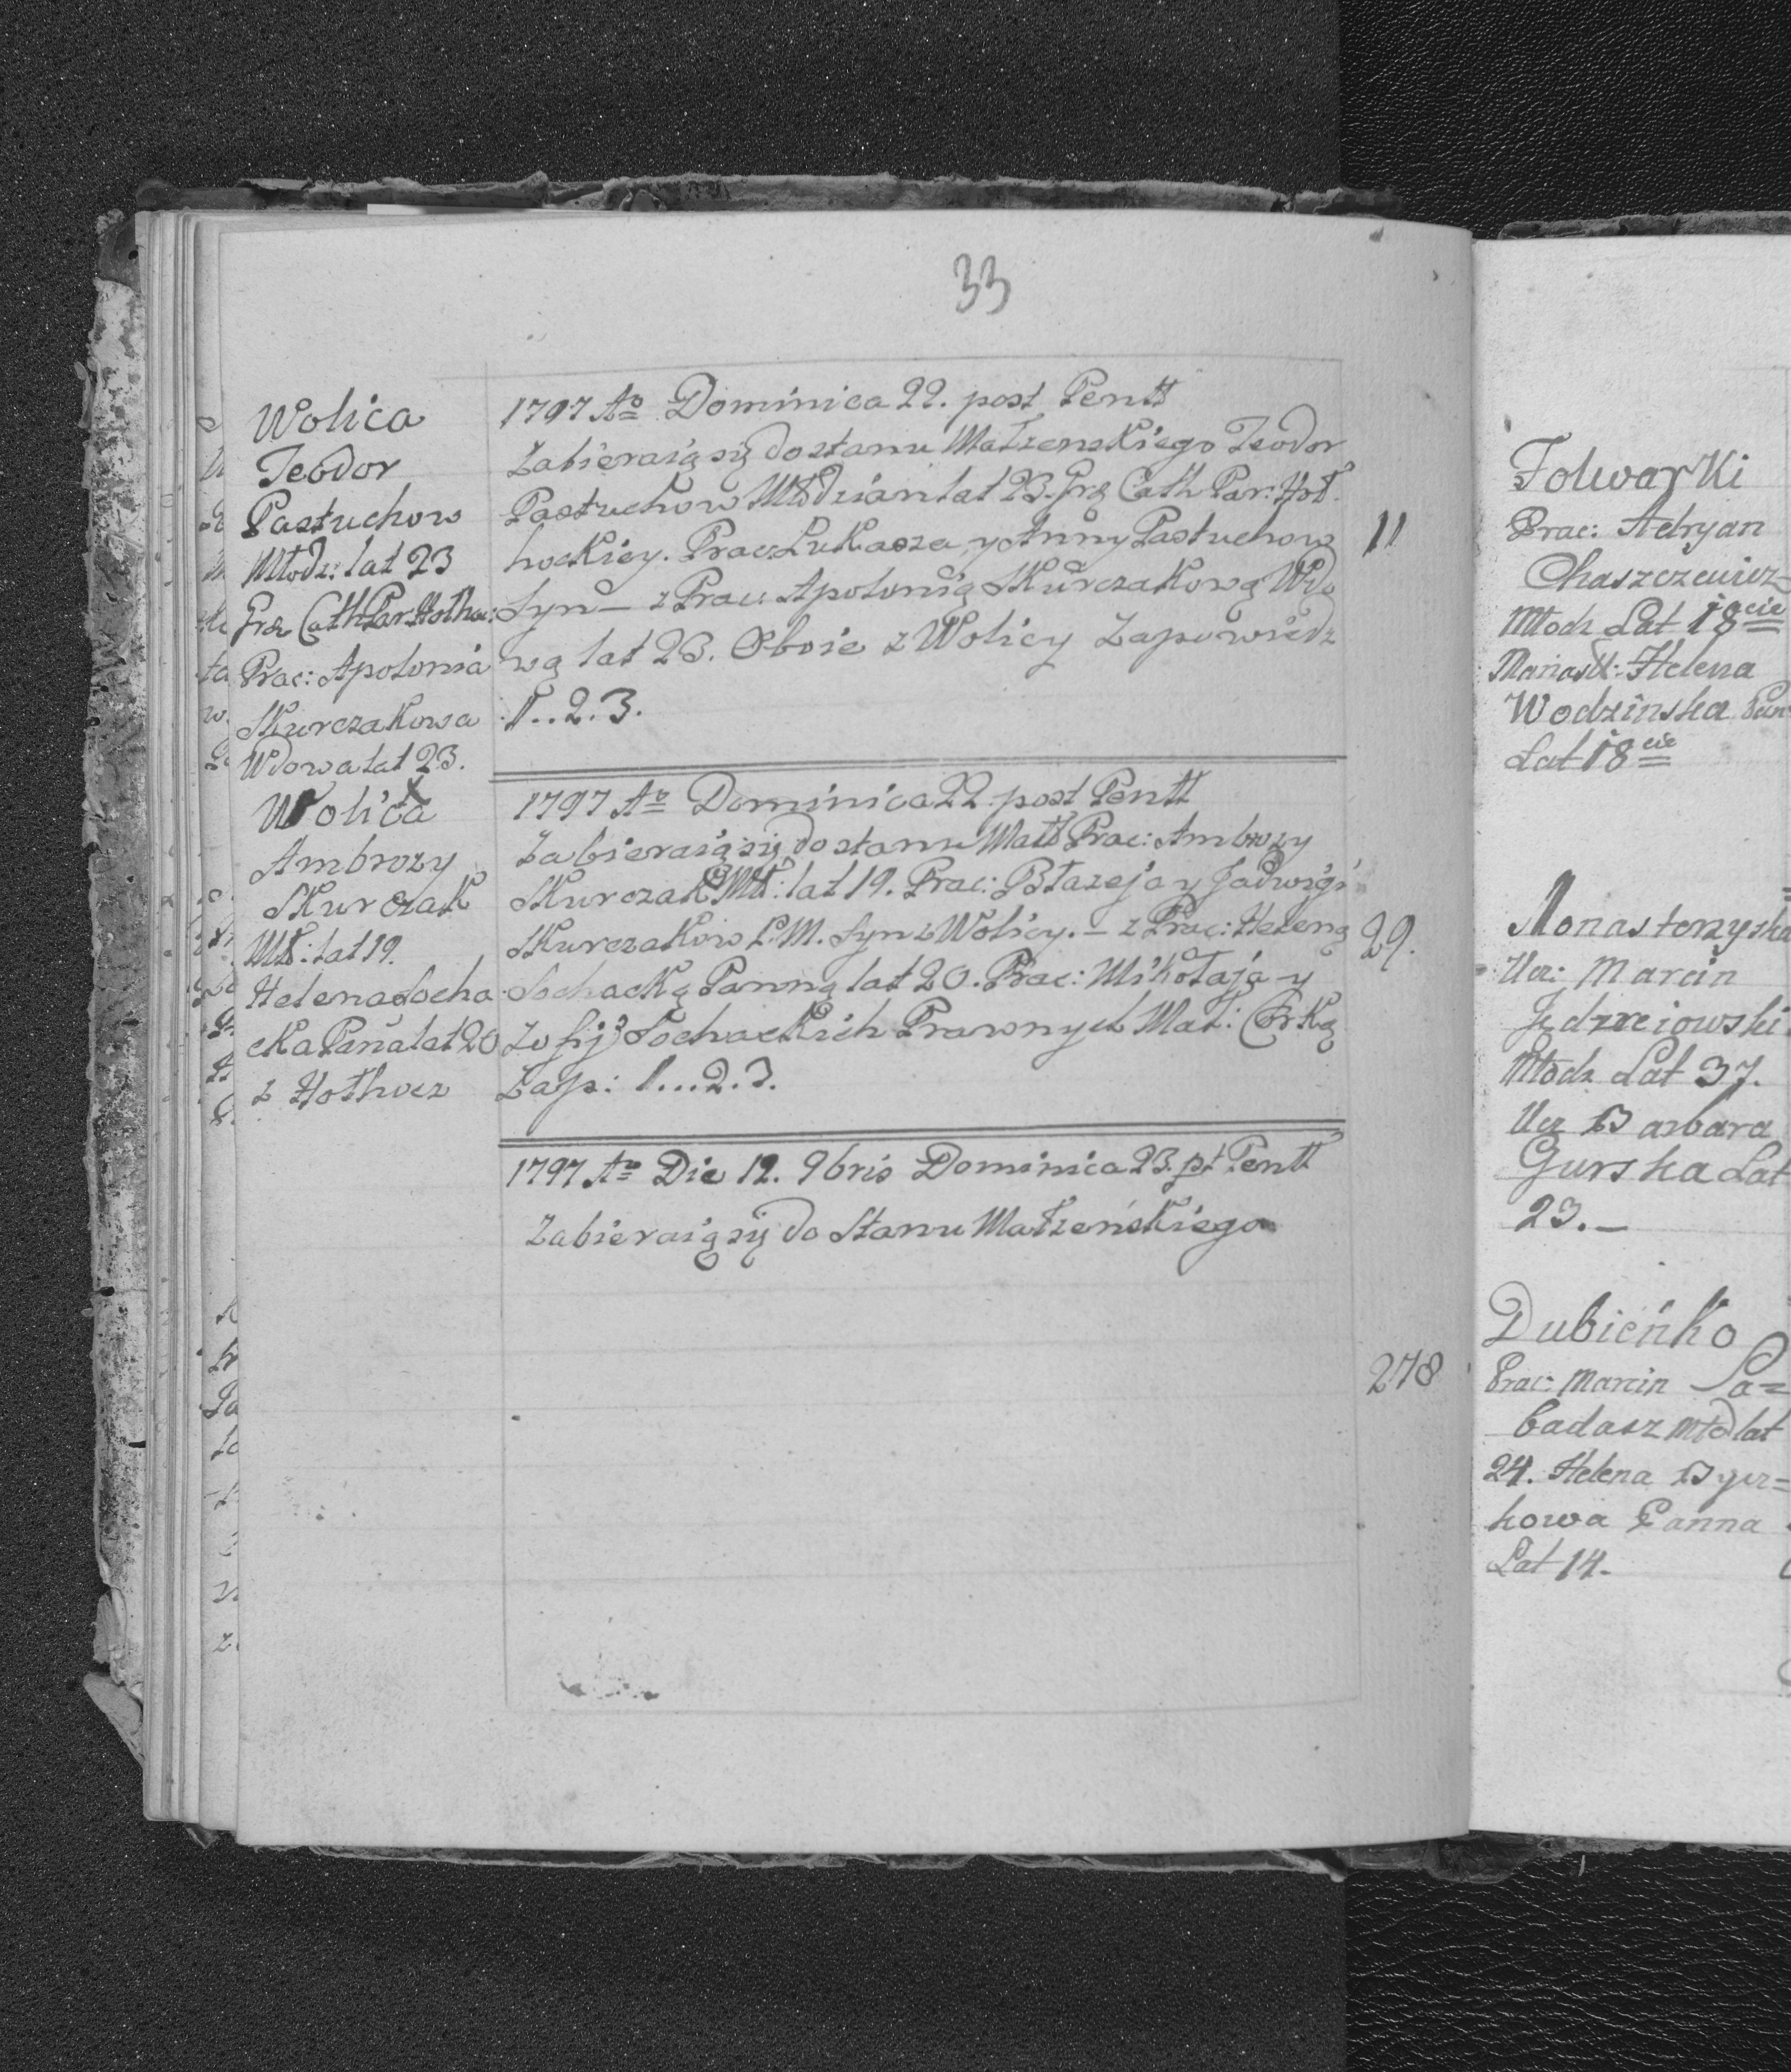 33
Wolica
Teodor
Pastuchow
Młodz: lat 23
Grz Cath Par Hołhoc:
Prac: Apolonia
Skurczakowa
Wdowa lat 23.
1797 Ao Dominica 22. post Pentt
Zabieraią się do stanu Małzenskiego Teodor
Pastuchow Młodzian lat 23. Grz Cath Par: Hoł
hockiey. Prac: Lukasza y Anny Pastuchow
Syn – z Prac: Apolonią Skurczakową Wdo
wą lat 23. Oboie z Wolicy Zapowiedz
1..2.3.
11
Wolica
Ambrozy
Skurczak
Mł: lat 19.
Helena Socha
cka Pana lat 20
z Hołhocz
1797 Ao Dominica 22 post Pentt
Zabieraią się do stanu Małż Prac: Ambrozy
Skurczak Mł: lat 19. Prac: Błazeja y Jadwigi
Skurczakow P.M. Syn z Wolicy. – z Prac: Heleną
Sochacką Panną lat 20. Prac: Mikołaja y
Zofij Sochackich Prawnych Mał: Corką
Zap: 1...2.3.
29.
1797 Ao Die 12. 9bris Dominica 23. pt Pentt
Zabieraią się do Stanu Małżeńskiego
278
Folwarki
Prac: Adryan
Chaszczewicz
Młodz Lat 18cie
Helena
Wodzinska Pan
Lat 18cie
Monasterzyska
Ucz: Marcin
Jędrzeiowski
Młodz Lat 37.
Ucz Barbara
Gurska Lat
23.–
Dubieńko
Prac: Marcin Sa=
badasz Młod lat
24. Helena
kowa Panna
Lat 14.